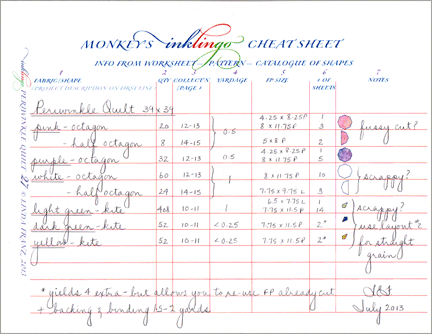 MONKEY'S inklingo CHEAT SHEET
INFO FROM WORKSHEET – PATTERN – CATALOGUE OF SHAPES
1 2 3 4 5 6 7
FABRIC/SHAPE QTY COLLECT'N YARDAGE FP SIZE # OF NOTES
(PROJECT DESCRIPTION ON FIRST LINE) /PAGE # SHEETS
Periwinkle Quilt 39 x 39
4.25 x 8.25 P 1
pink - octagon 20 12-13 0.5 8 x 11.75 P 3 fussy cut?
- half octagon 8 14-15 5 x 8 P 2
4.25 x 8.25 P 1
purple - octagon 32 12-13 0.5 8 x 11.75 P 5
white - octagon 60 12-13 1 8 x 11.75 P 10 scrappy?
- half octagon 24 14-15 7.75 x 9.75 L 3
6.5 x 7.75 L 1
light green - kite 408 10-11 1 7.75 x 11.5 P 14 scrappy?
dark green - kite 52 10-11 < 0.25 7.75 x 11.5 P 2* use layout #2
yellow - kite 52 10-11 < 0.25 7.75 x 11.5 P 2* for straight
grain
* yields 4 extra - but allows you to re-use FP already cut
+ backing & binding 1.5-2 yards July 2013